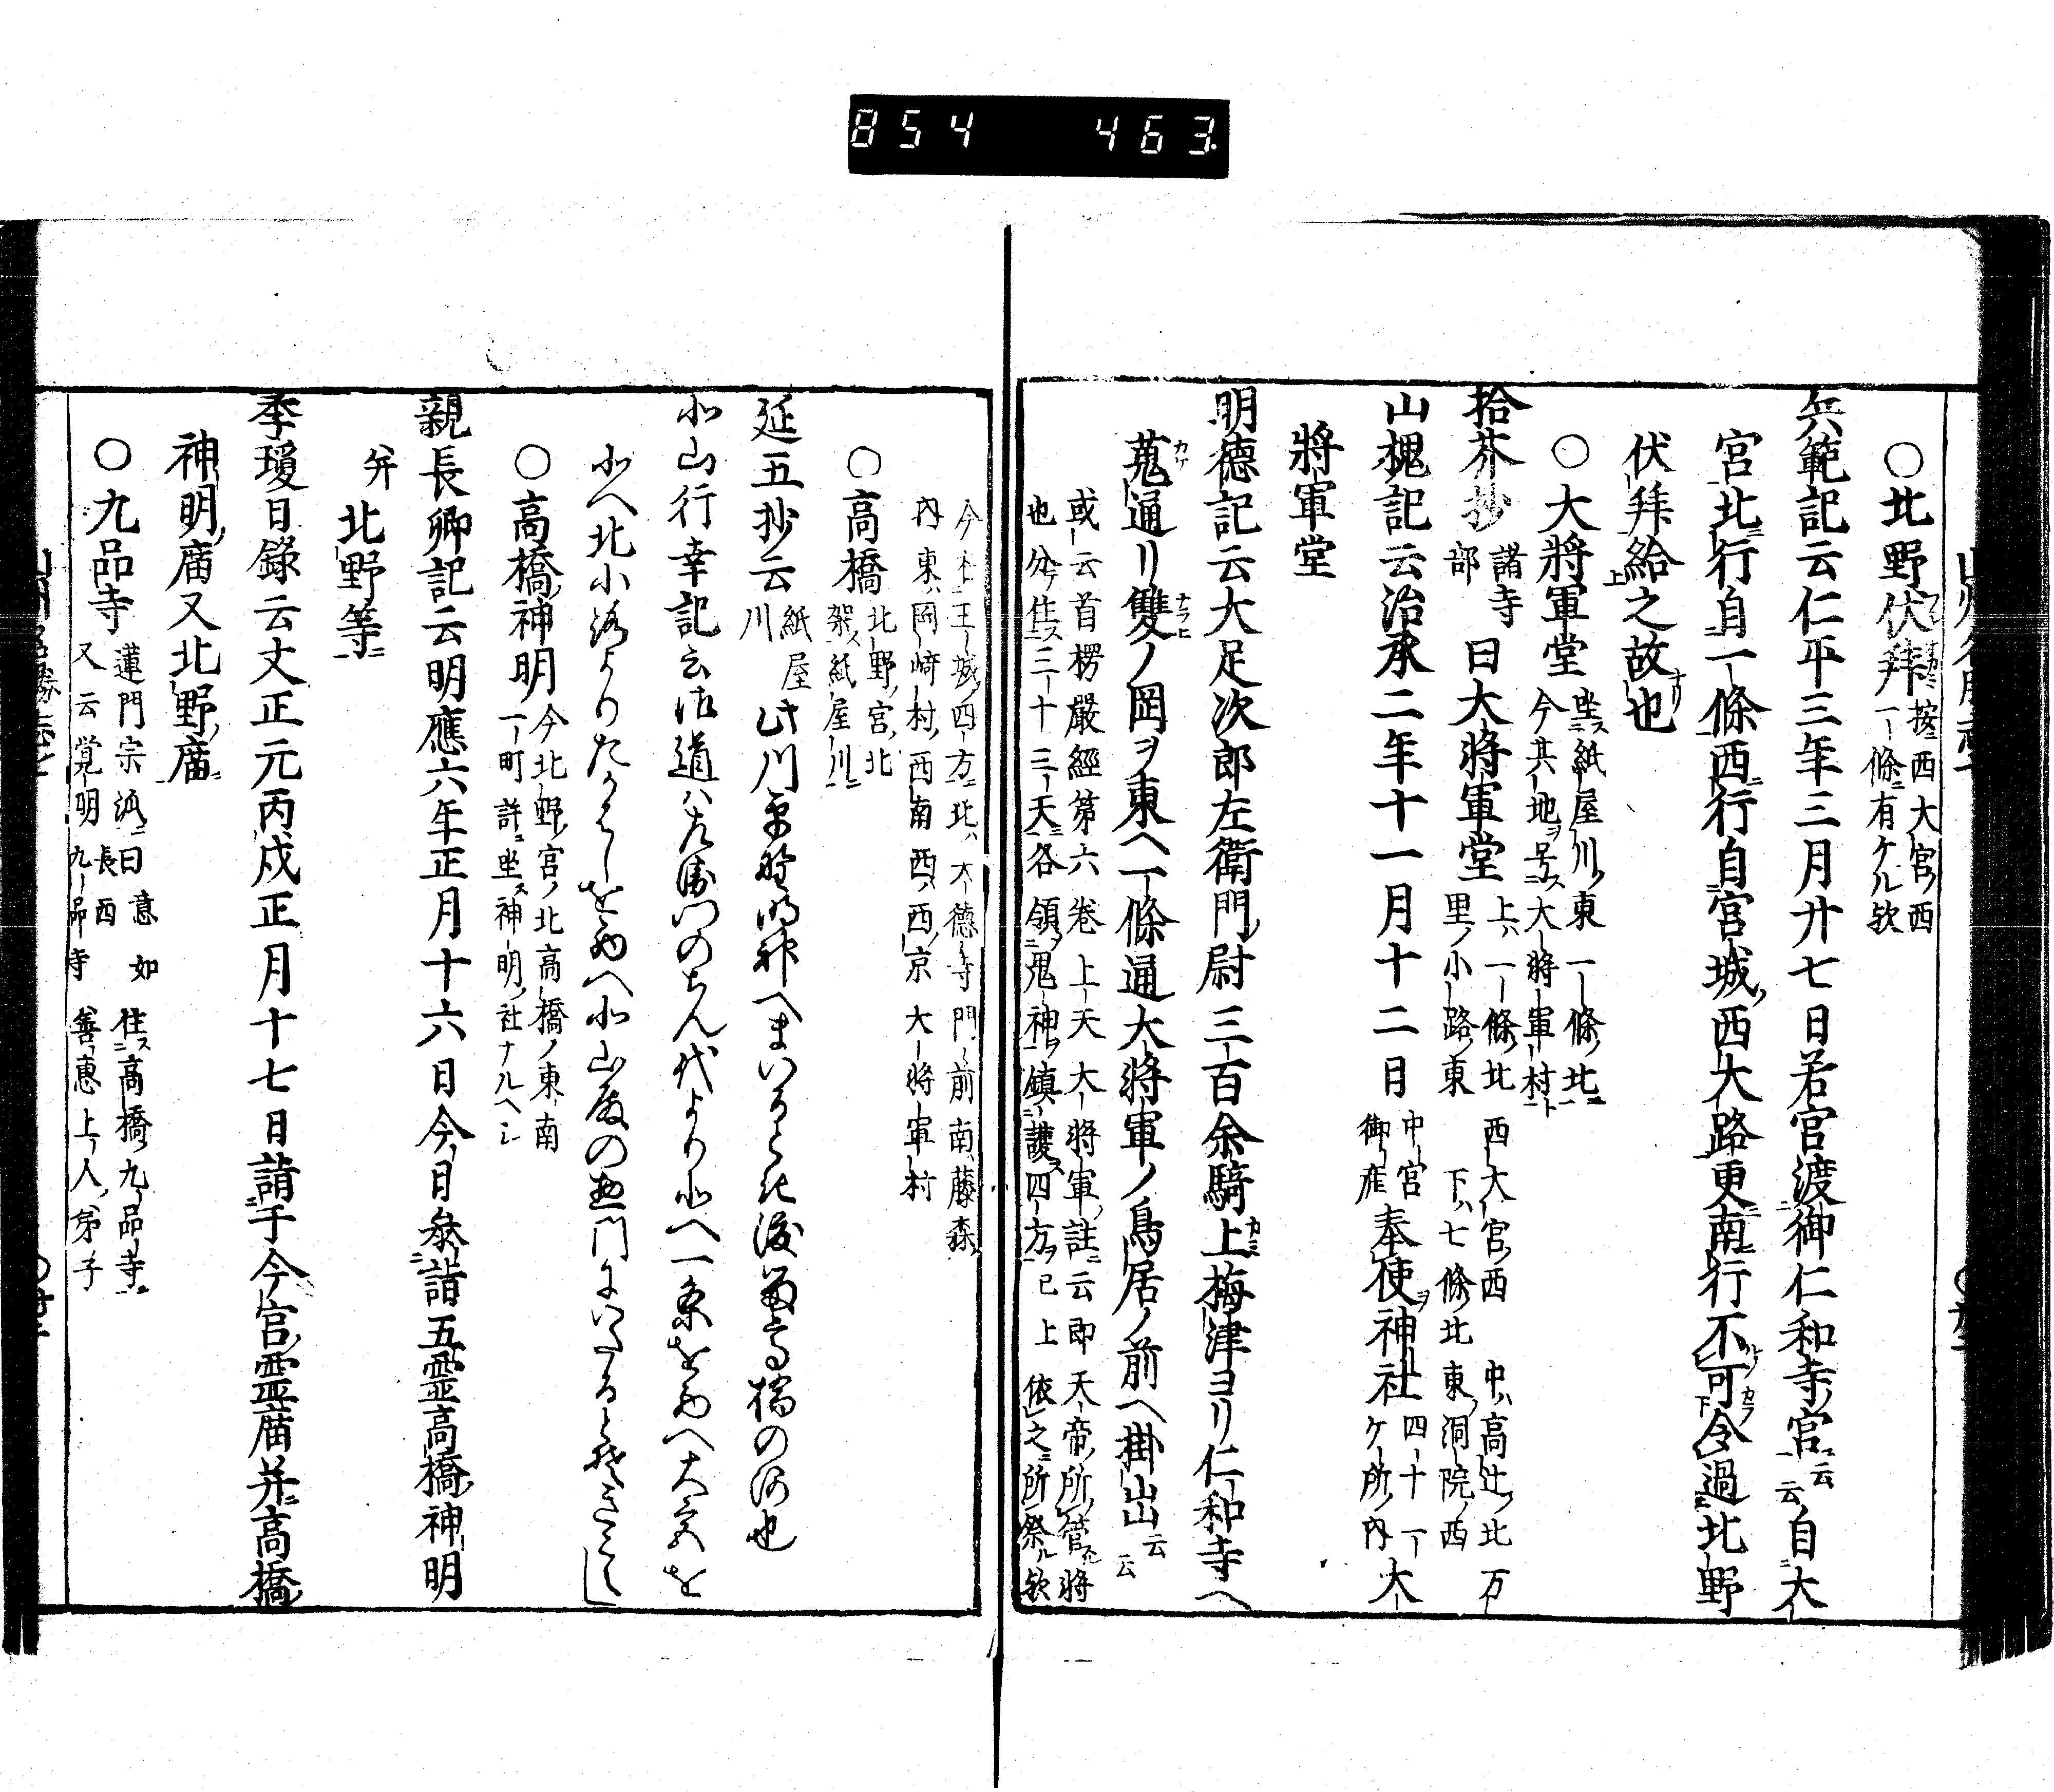 854 463
○北野伏拜 按西大宮ノ西
一條ニ有ケル欤
兵範記云仁平三年三月廿七日若宮渡御仁和寺宮云云自大
宮北行自一條西行自宮城西大路更南行不可令過北野
伏拜給之故也
○大將軍堂 坐ス紙屋川ノ東一條ノ北ニ
今其地ヲ号ス大將軍村ト
拾芥抄 諸寺部 曰大將軍堂 上ハ一條ノ北 西大宮ノ西 中ハ高辻ノ北 万
里ノ小路ノ東 下ハ七條ノ北 東ノ洞院ノ西
山槐記云治承二年十一月十二日 中宮御産 奉使神社 四十一ケ所ノ内 大
將軍堂
明德記云大足次郎左衛門尉三百余騎上梅津ヨリ仁和寺ヘ
蒐通リ雙ノ岡ヲ東ヘ一條通大將軍ノ鳥居ノ前ヘ掛出云云
或云首楞嚴經第六卷上天大將軍註云即天帝所管將
也分住三十三天各領鬼神鎮護四方ヲ已上依之所祭ル欤
今在王城ノ四方ニ北ハ大德寺門前南藤森
内東ハ岡崎村ノ西南西ハ西ノ京大將軍村
○高橋 北野ノ宮ノ北
架ス紙屋川ニ
延五抄云 紙屋川 此川 へまいる 橋の河也
北山行幸記云 道ハ 代より北へ一条を へ大宮を
北へ北小路よりたかはしを へ北山殿の惣門にいたる
○高橋神明 今北野ノ宮ノ北高橋ノ東南
一町許ニ坐ス神明ノ社ナルヘシ
親長卿記云明應六年正月十六日今日參詣五霊高橋神明
并北野等
季瓊日録云文正元丙戌正月十七日詣于今宮霊庿并高橋
神明庿又北野庿
○九品寺 蓮門宗派ニ曰 意如 住ス高橋九品寺ニ
又云覚明 長西 九品寺 善惠上人ノ弟子